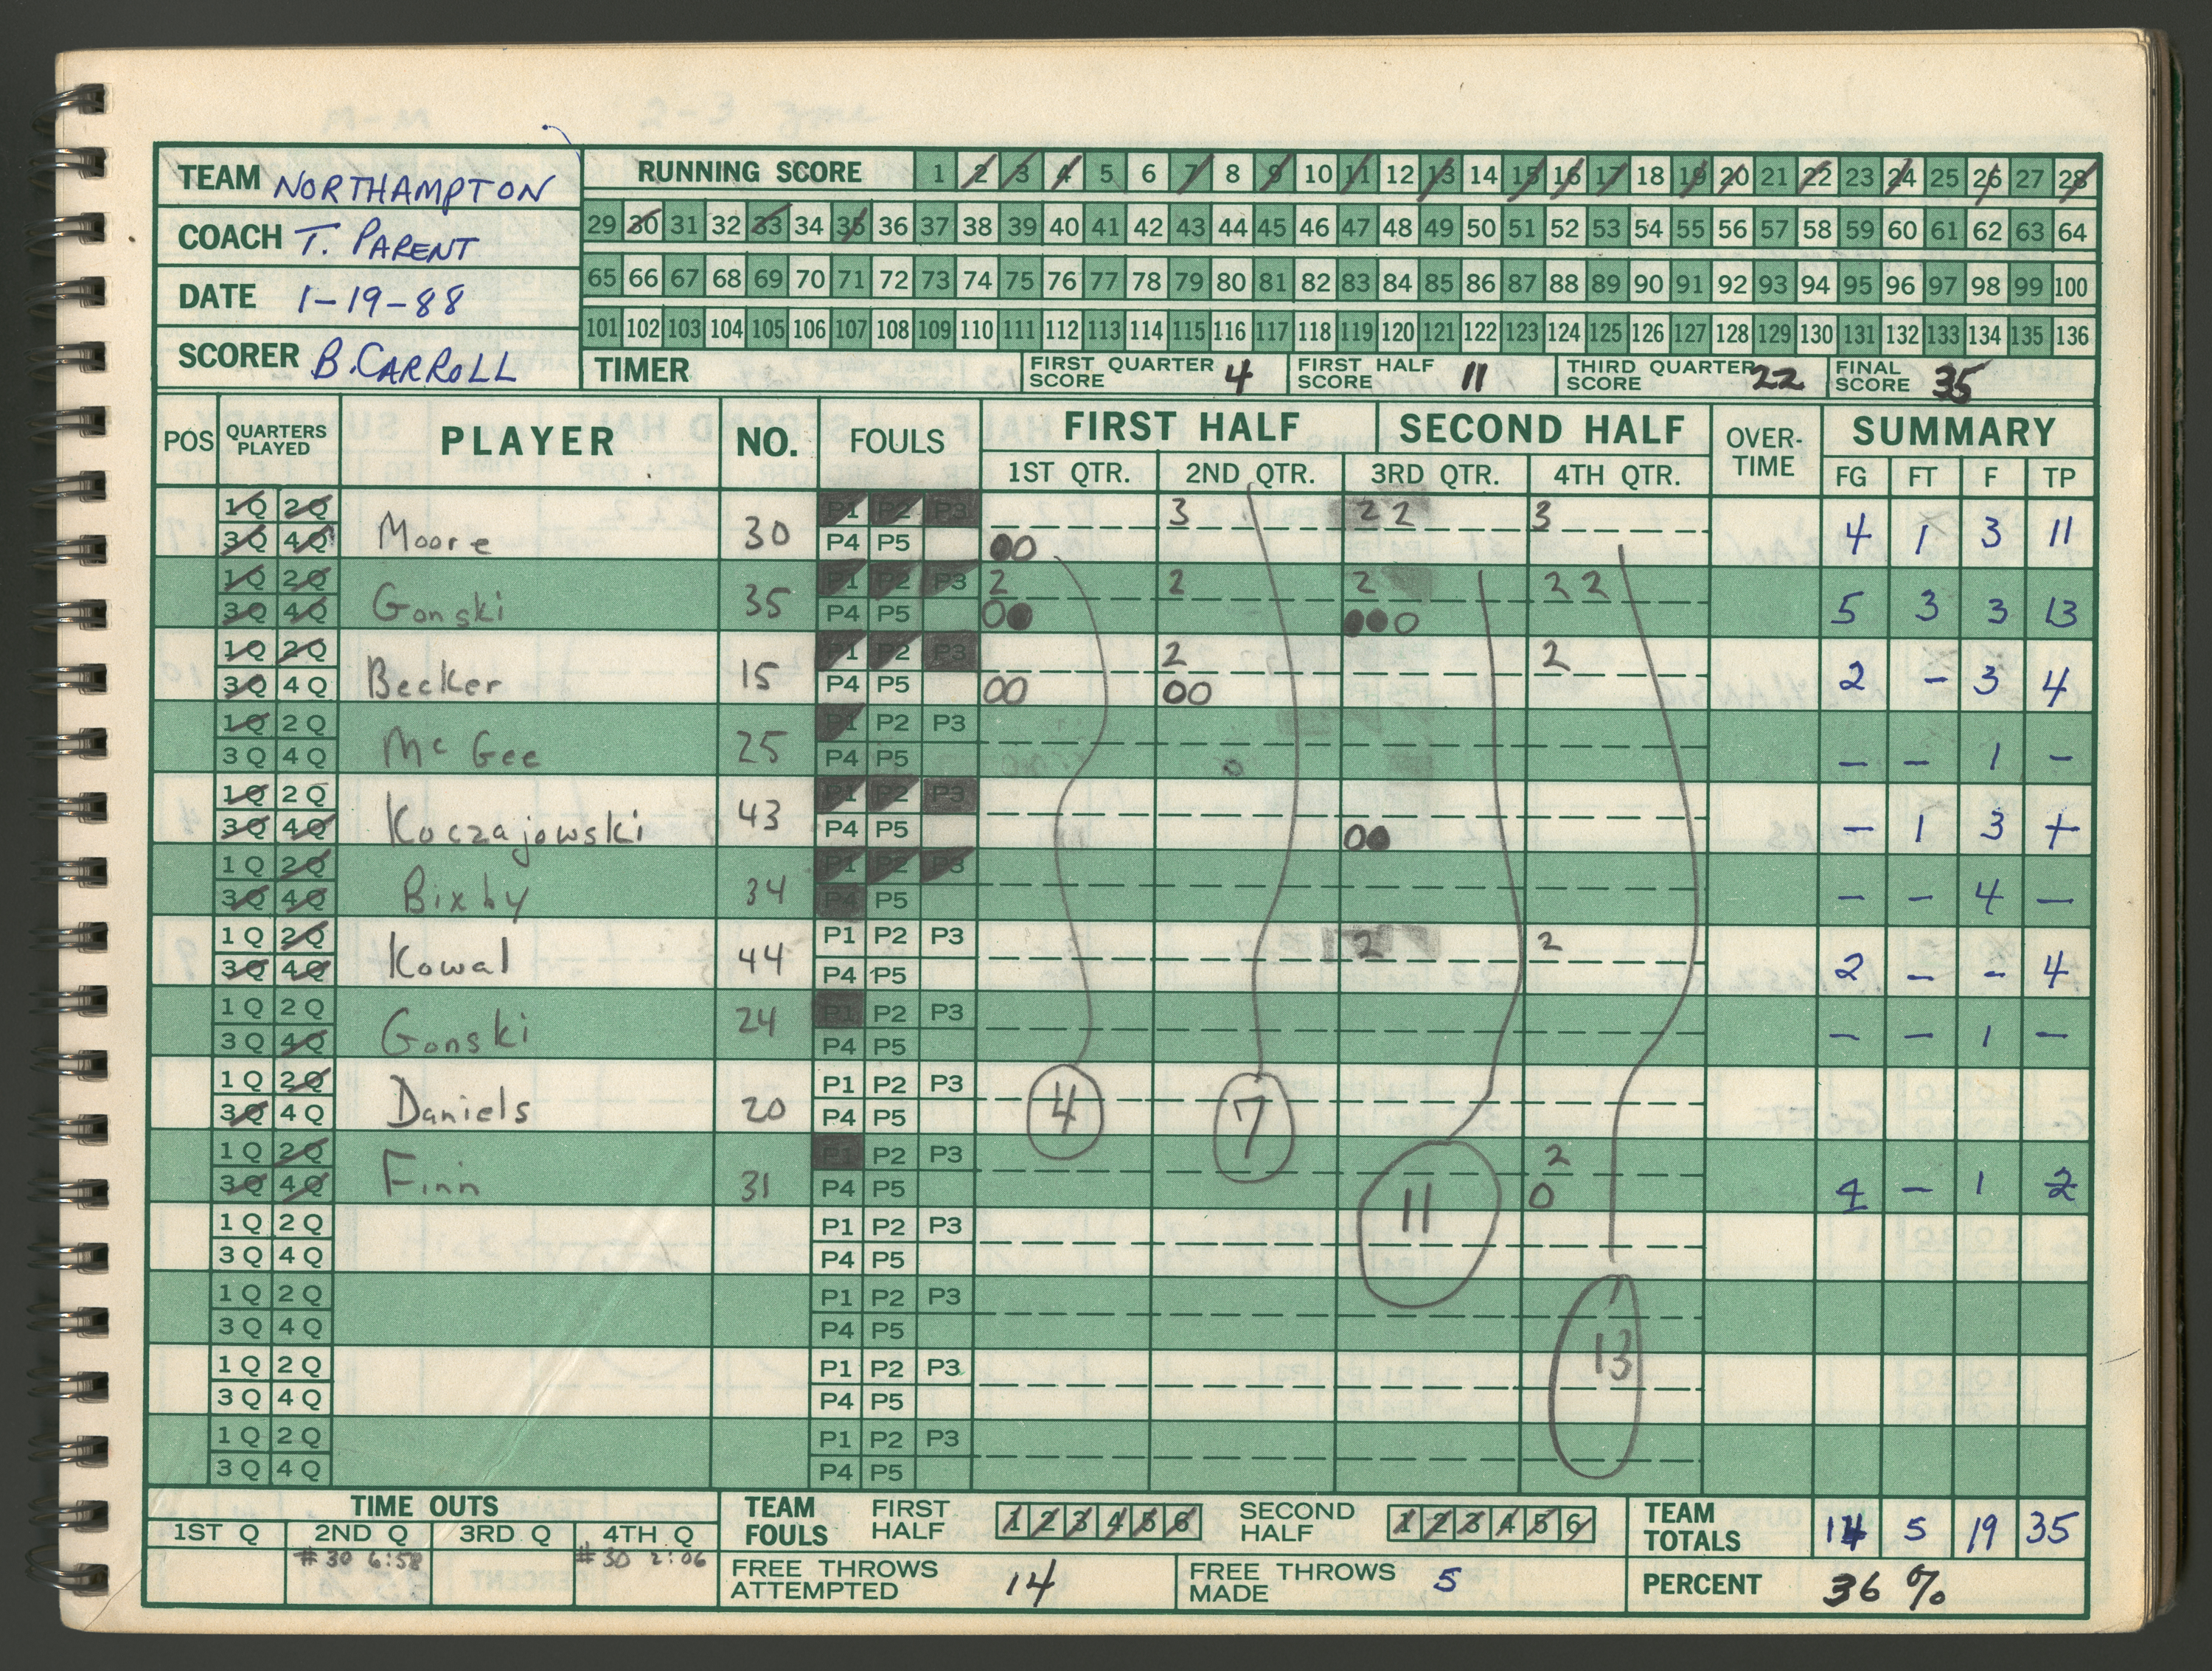 TEAM NORTHAMPTON
COACH T. PARENT
DATE 1-19-88
SCORER B. CARROLL
RUNNING SCORE 1 2 3 4 5 6 7 8 9 10 11 12 13 14 15 16 17 18 19 20 21 22 23 24 25 26 27 28
29 30 31 32 33 34 35 36 37 38 39 40 41 42 43 44 45 46 47 48 49 50 51 52 53 54 55 56 57 58 59 60 61 62 63 64
65 66 67 68 69 70 71 72 73 74 75 76 77 78 79 80 81 82 83 84 85 86 87 88 89 90 91 92 93 94 95 96 97 98 99 100
101 102 103 104 105 106 107 108 109 110 111 112 113 114 115 116 117 118 119 120 121 122 123 124 125 126 127 128 129 130 131 132 133 134 135 136
TIMER FIRST QUARTER SCORE 4 FIRST HALF SCORE 11 THIRD QUARTER SCORE 22 FINAL SCORE 35
POS QUARTERS PLAYED PLAYER NO. FOULS FIRST HALF SECOND HALF OVER-TIME SUMMARY
1ST QTR. 2ND QTR. 3RD QTR. 4TH QTR. FG FT F TP
1Q 2Q P1 P2 P3 3 2 2 3
3Q 4Q Moore 30 P4 P5 00 4 1 3 11
1Q 2Q P1 P2 P3 2 2 2 2 2
3Q 4Q Gonski 35 P4 P5 00 000 5 3 3 13
1Q 2Q P1 P2 P3 2 2
3Q 4Q Becker 15 P4 P5 00 00 2 - 3 4
1Q 2Q P1 P2 P3
3Q 4Q McGee 25 P4 P5 0 - - 1 -
1Q 2Q P1 P2 P3
3Q 4Q Koczajowski 43 P4 P5 00 - 1 3 1
1Q 2Q P1 P2 P3
3Q 4Q Bixby 34 P4 P5 - - 4 -
1Q 2Q P1 P2 P3 2 2
3Q 4Q Kowal 44 P4 P5 2 - - 4
1Q 2Q P1 P2 P3
3Q 4Q Gonski 24 P4 P5 - - 1 -
1Q 2Q P1 P2 P3
3Q 4Q Daniels 20 P4 P5 4 7
1Q 2Q P1 P2 P3 2
3Q 4Q Finn 31 P4 P5 11 0 1 - 1 2
1Q 2Q P1 P2 P3
3Q 4Q P4 P5
1Q 2Q P1 P2 P3
3Q 4Q P4 P5
1Q 2Q P1 P2 P3 13
3Q 4Q P4 P5
1Q 2Q P1 P2 P3
3Q 4Q P4 P5
TIME OUTS
1ST Q 2ND Q 3RD Q 4TH Q
#30 6:58 #30 2:06
TEAM FOULS FIRST HALF 1 2 3 4 5 6 SECOND HALF 1 2 3 4 5 6
TEAM TOTALS 14 5 19 35
FREE THROWS ATTEMPTED 14 FREE THROWS MADE 5 PERCENT 36 %